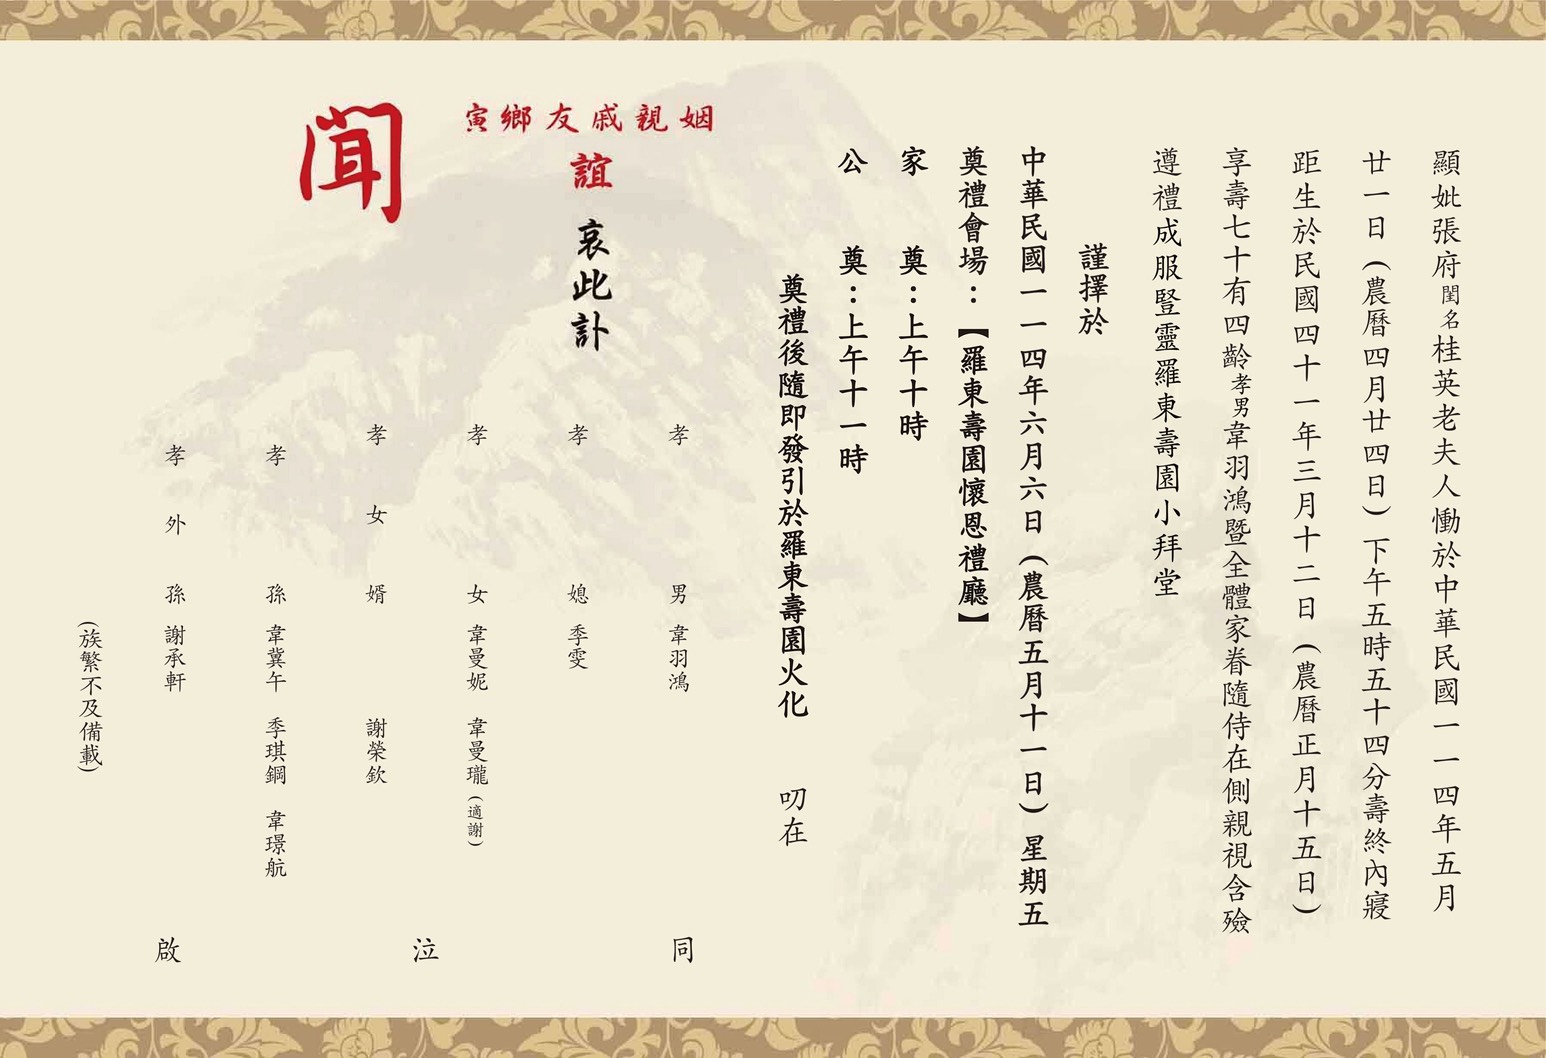 顯妣張府閨名桂英老夫人慟於中華民國一一四年五月
廿一日(農曆四月廿四日)下午五時五十四分壽終內寢
距生於民國四十一年三月十二日(農曆正月十五日)
享壽七十有四齡孝男韋羽鴻暨全體家眷隨侍在側親視含殮
遵禮成服豎靈羅東壽園小拜堂
謹擇於
中華民國一一四年六月六日(農曆五月十一日)星期五
奠禮會場：【羅東壽園懷恩禮廳】
家 奠：上午十時
公 奠：上午十一時
奠禮後隨即發引於羅東壽園火化 叨在
姻親戚友鄉寅
誼 哀此訃
聞
孝 男 韋羽鴻
孝 媳 季雯
孝 女 韋曼妮 韋曼瓏(適謝)
孝 女 婿 謝榮欽
孝 孫 韋冀午 季琪鋼 韋璟航
孝 外 孫 謝承軒
(族繁不及備載)
同 泣 啟